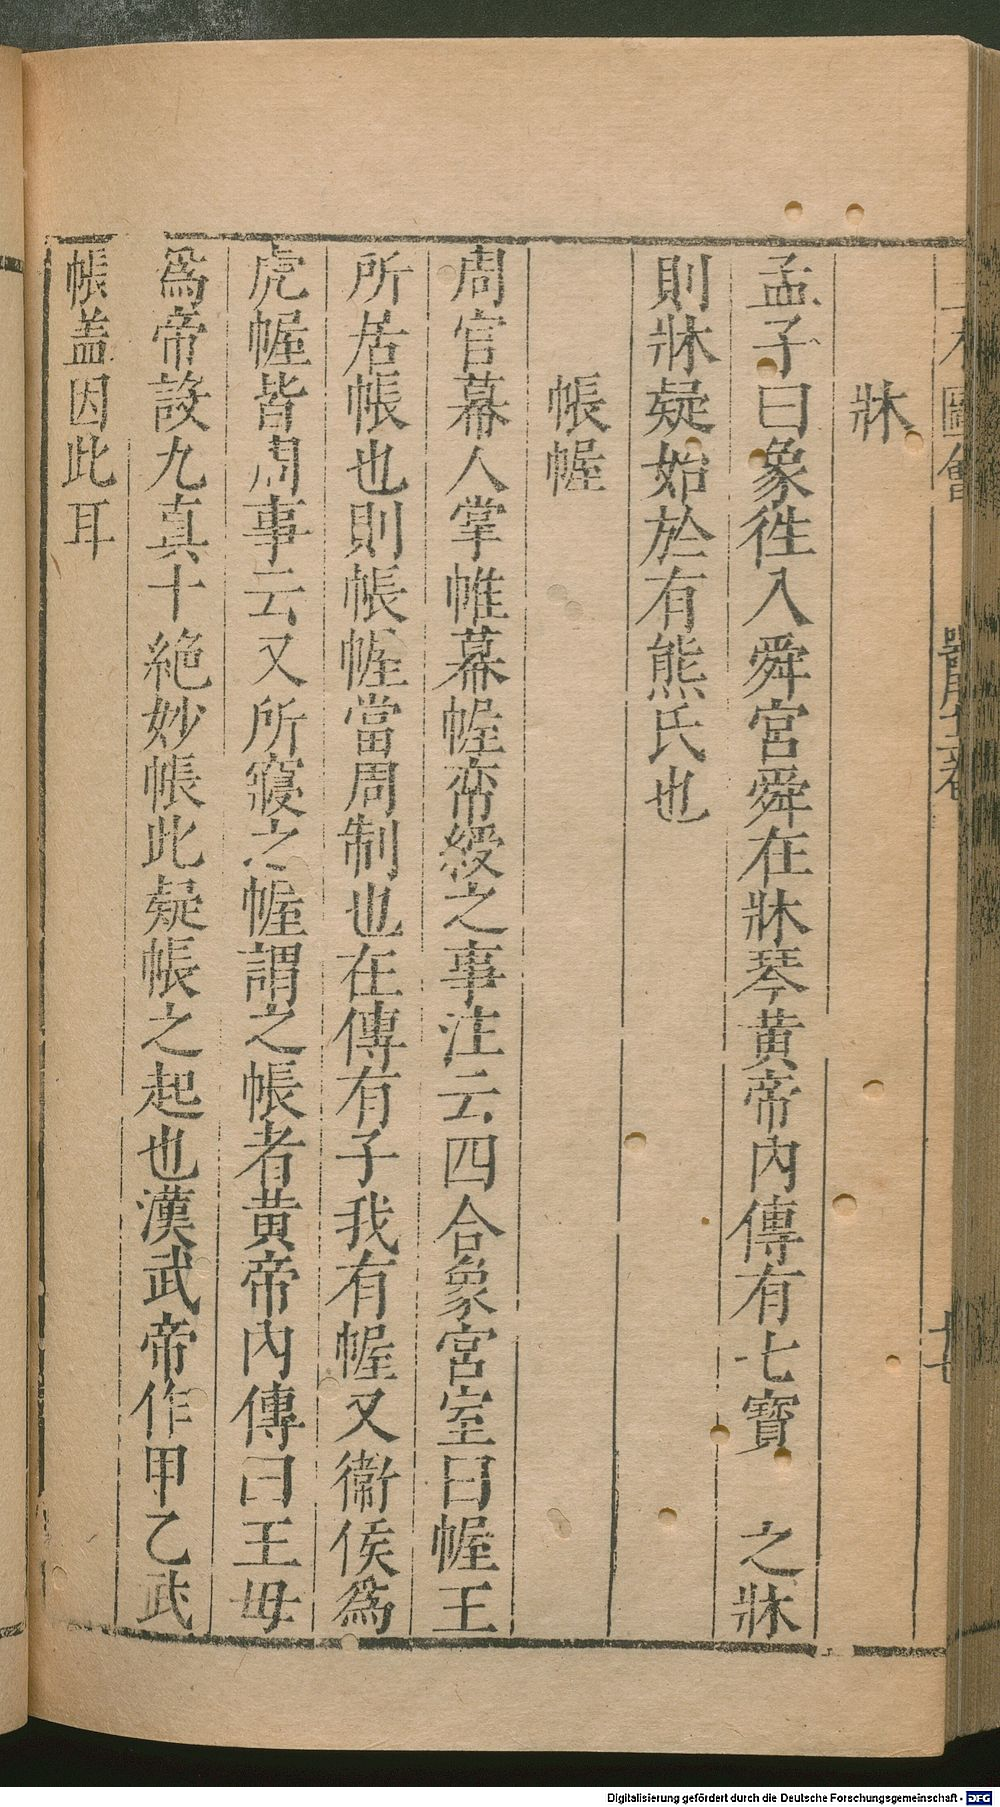 三才圖會 器用十二卷
牀
孟子曰象徃入舜宮舜在牀琴黄帝內傳有七寶 之牀
則牀疑始於有熊氏也
帳幄
周官幕人掌帷幕幄帟綬之事注云四合象宮室曰幄王
所居帳也則帳幄當周制也在傳有子我有幄又衞侯爲
虎幄皆周事云又所寢之幄謂之帳者黄帝內傳曰王母
爲帝設九真十絶妙帳此疑帳之起也漢武帝作甲乙武
帳盖因此耳
Digitalisierung gefördert durch die Deutsche Forschungsgemeinschaft - DFG